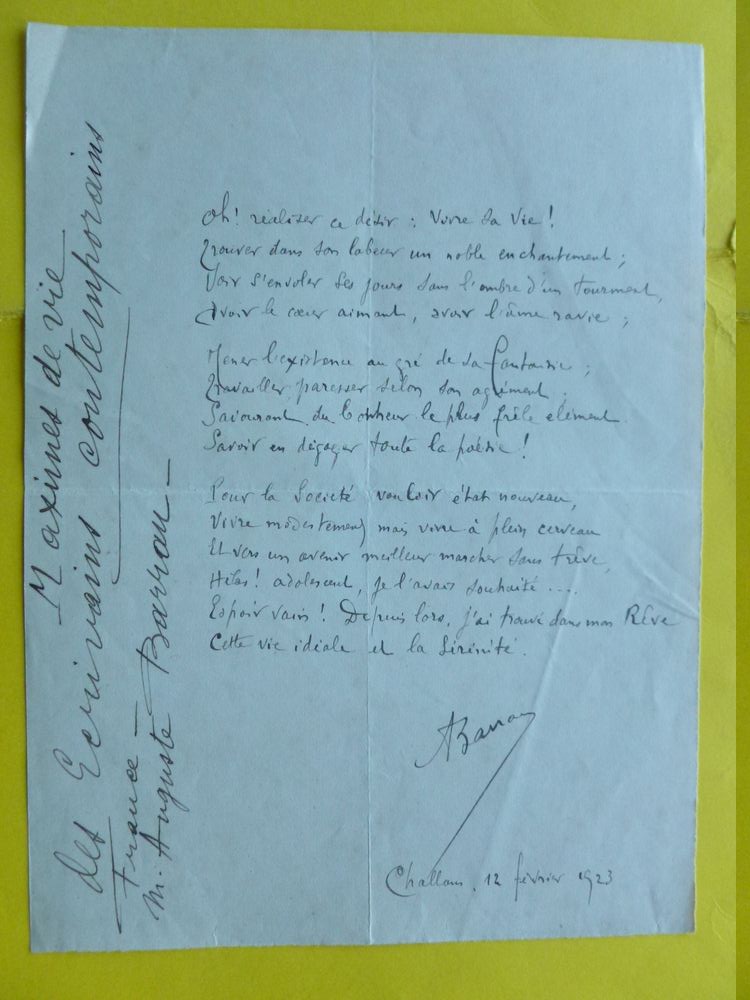 Maximes de vie
des Ecrivains contemporains
France —
M. Auguste Barrau —
Oh! réaliser ce désir : Vivre sa vie !
Trouver dans son labeur un noble enchantement ;
Voir s'envoler ses jours sans l'ombre d'un tourment,
Avoir le cœur aimant, avoir l'âme ravie ;
Mener l'existence au gré de sa fantaisie ;
Travailler, paresser selon son agrément,
Savourant du bonheur le plus frêle élément
Savoir en dégager toute la poésie !
Pour la Société vouloir état nouveau,
Vivre modestement, mais vivre à plein cerveau
Et vers un avenir meilleur marcher sans trêve,
Hélas! adolescent, je l'avais souhaité ....
Espoir vain ! Depuis lors, j'ai trouvé dans mon Rêve
Cette vie idéale et la Sérénité.
ABarrau
Challans, 12 février 1923